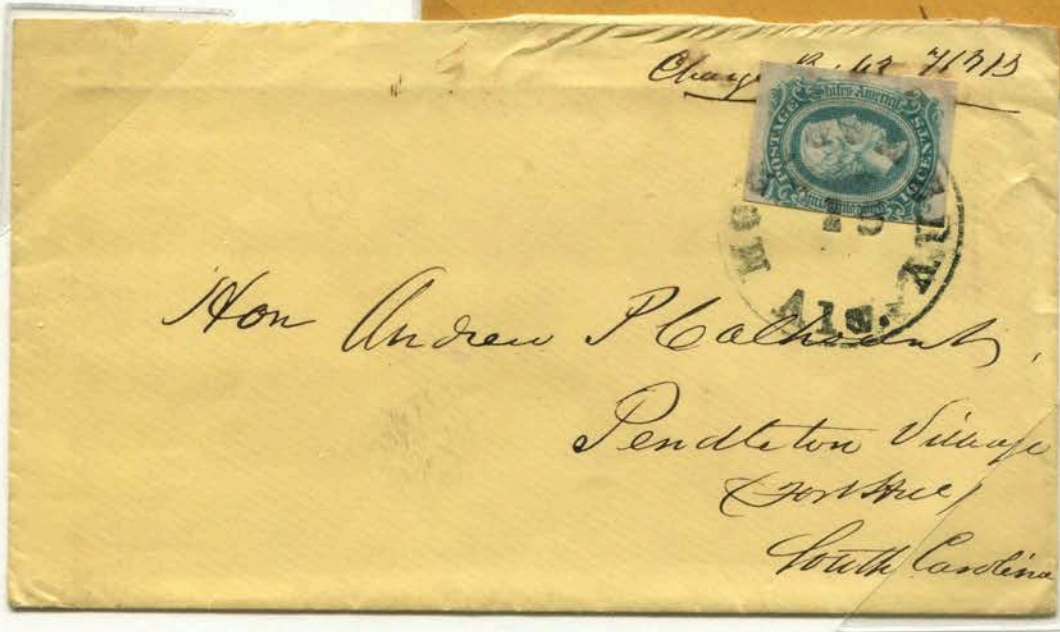 Charge Box
States America
POSTAGE
CENTS
15
Ala.
Hon Andrew P Calhoun
Pendleton Village
(Fort Hill)
South Carolina